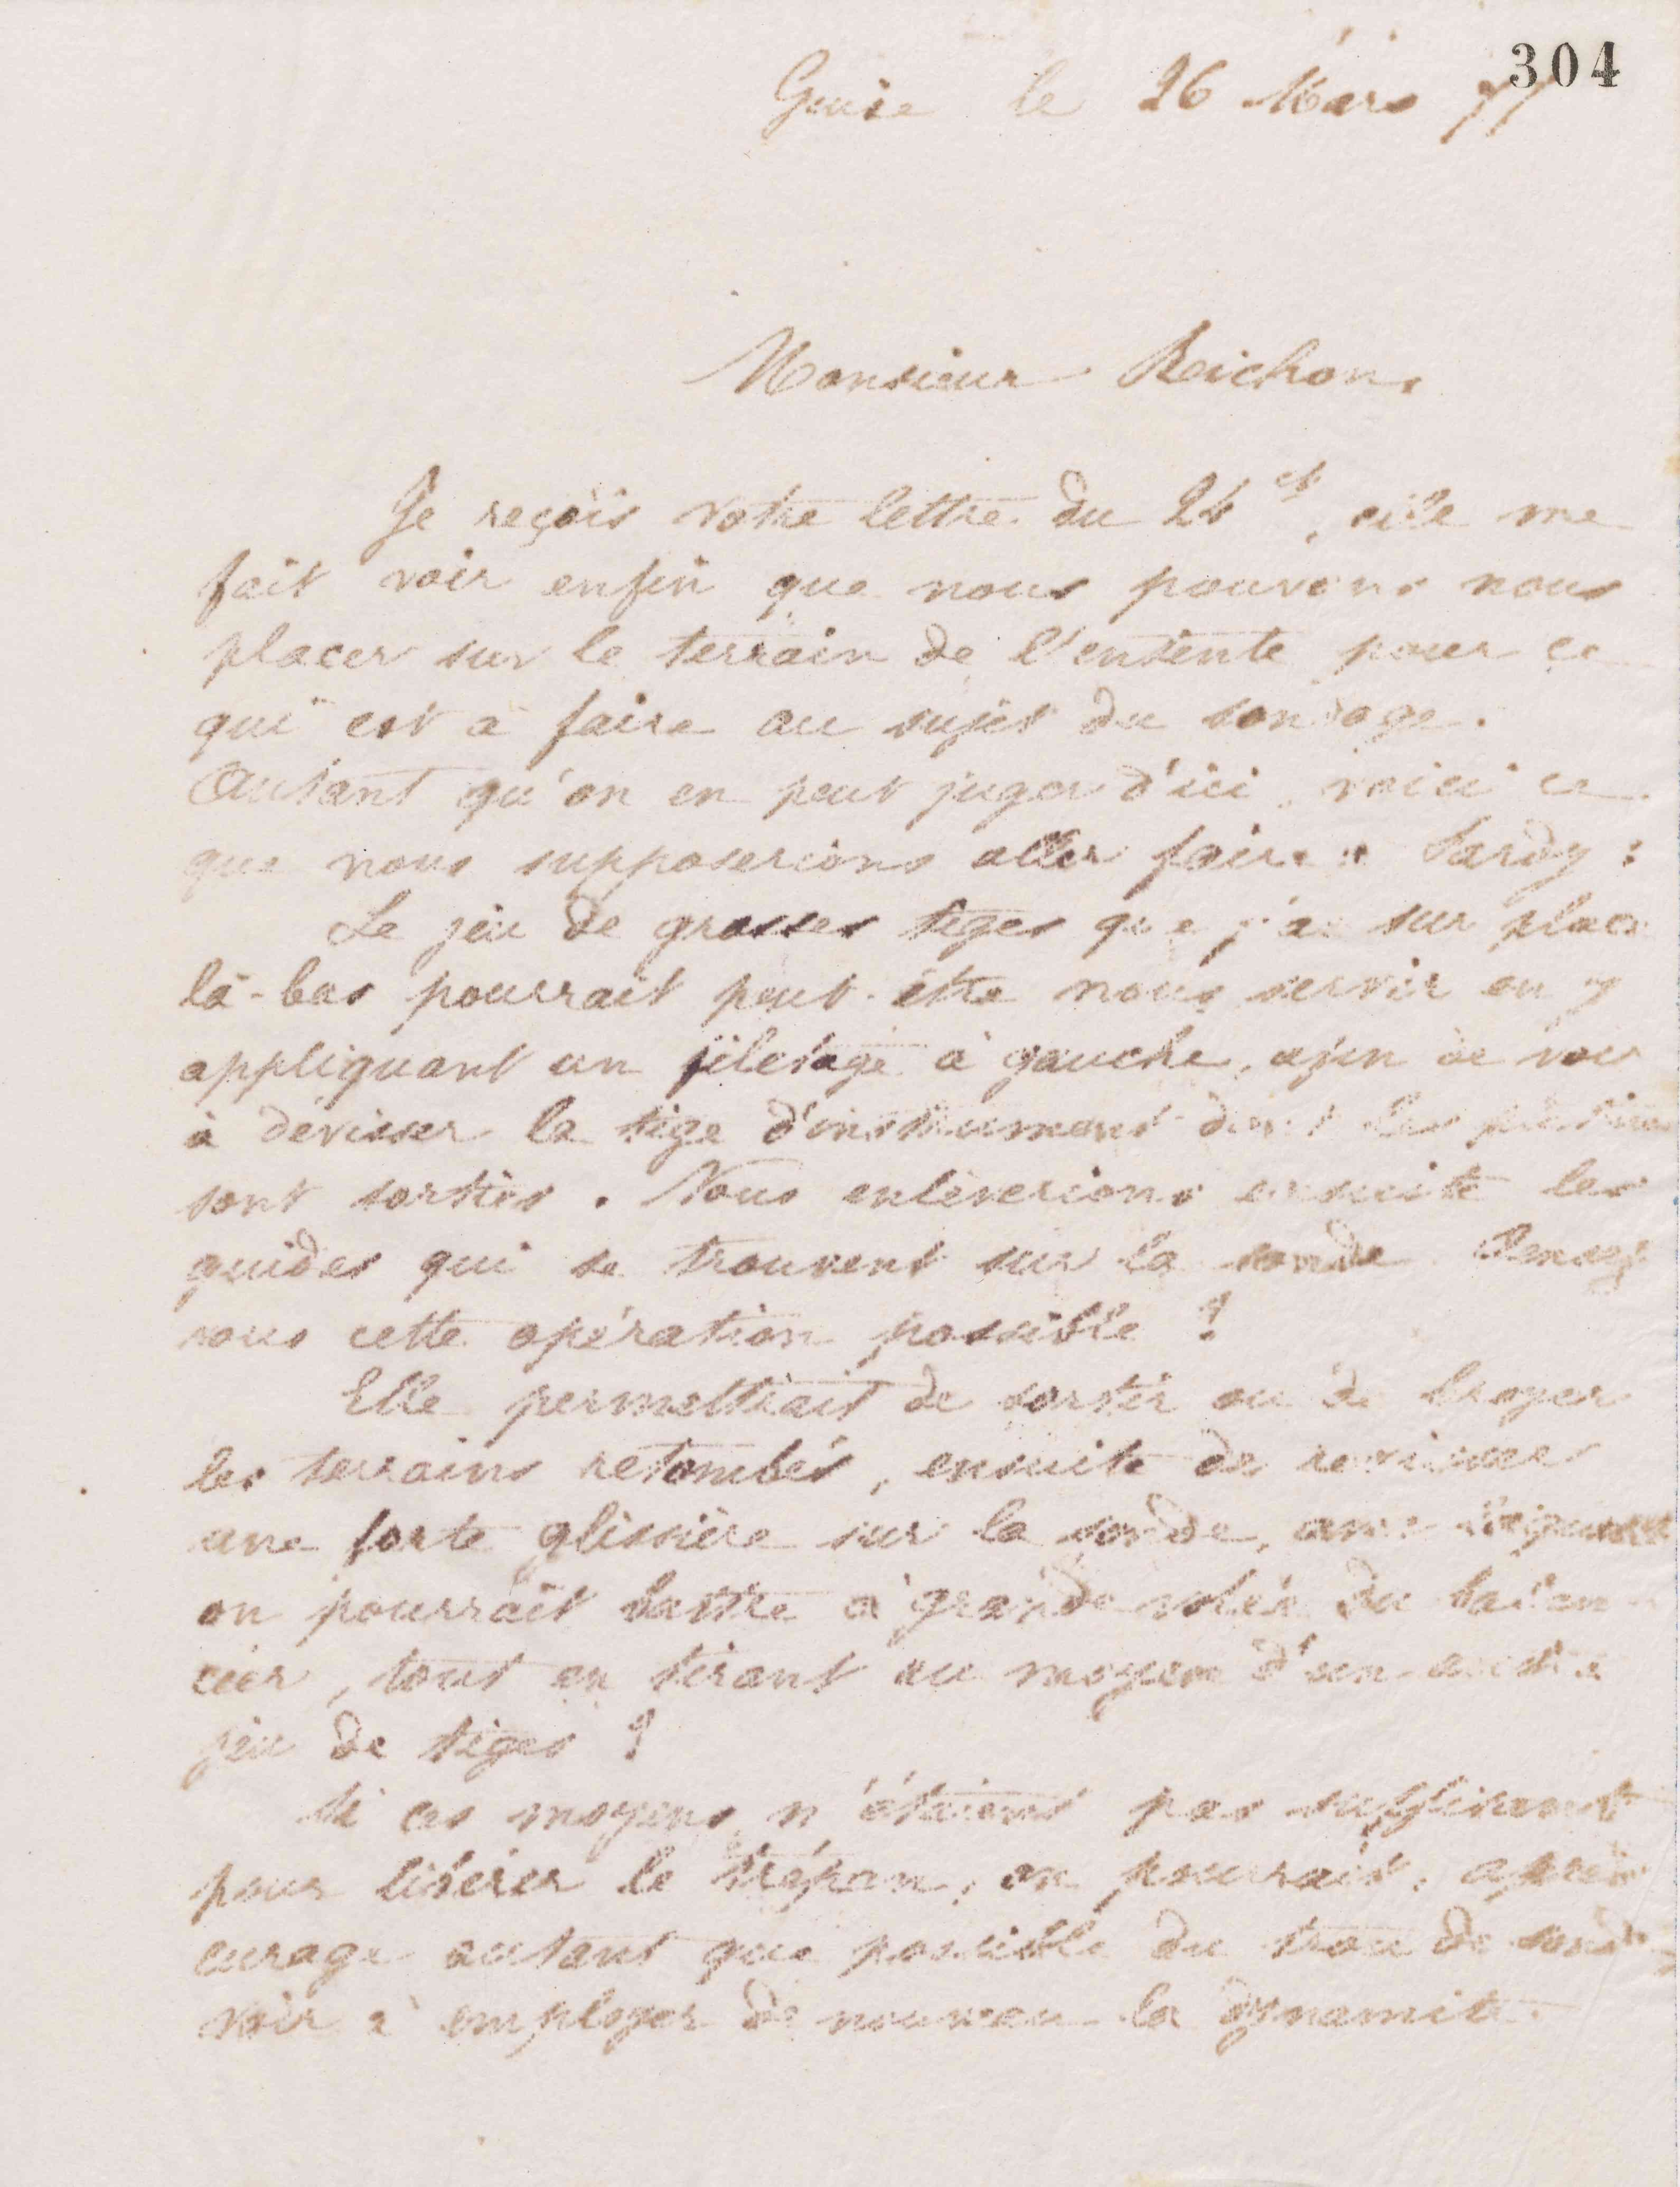 304
Guise le 26 Mars 77
Monsieur Reichon,
Je reçois votre lettre du 24 ct, elle me
fait voir enfin que nous pouvons nous
placer sur le terrain de l'entente pour ce
qui est à faire au sujet du sondage.
Autant qu'on en peut juger d'ici, voici ce
que nous supposerions aller faire à Sardy :
Le jeu de grosses tiges que j'ai sur place
là-bas pourrait peut-être nous servir en y
appliquant un filetage à gauche, afin de voir
à dévisser la tige d'instrument dont les
sont sorties. Nous enlèverions ensuite les
guides qui se trouvent sur la sonde. Pensez
vous cette opération possible ?
Elle permettrait de sortir ou de broyer
les terrains retombés, ensuite de revisser
une forte glissière sur la sonde, avec
on pourrait battre à grande volée du balan
cier, tout en tirant au moyen d'un autre
jeu de tiges ?
Si ces moyens n'étaient pas suffisants
pour libérer le trépan, on pourrait, après
curage autant que possible du trou de sonde
voir à employer de nouveau la dynamite.